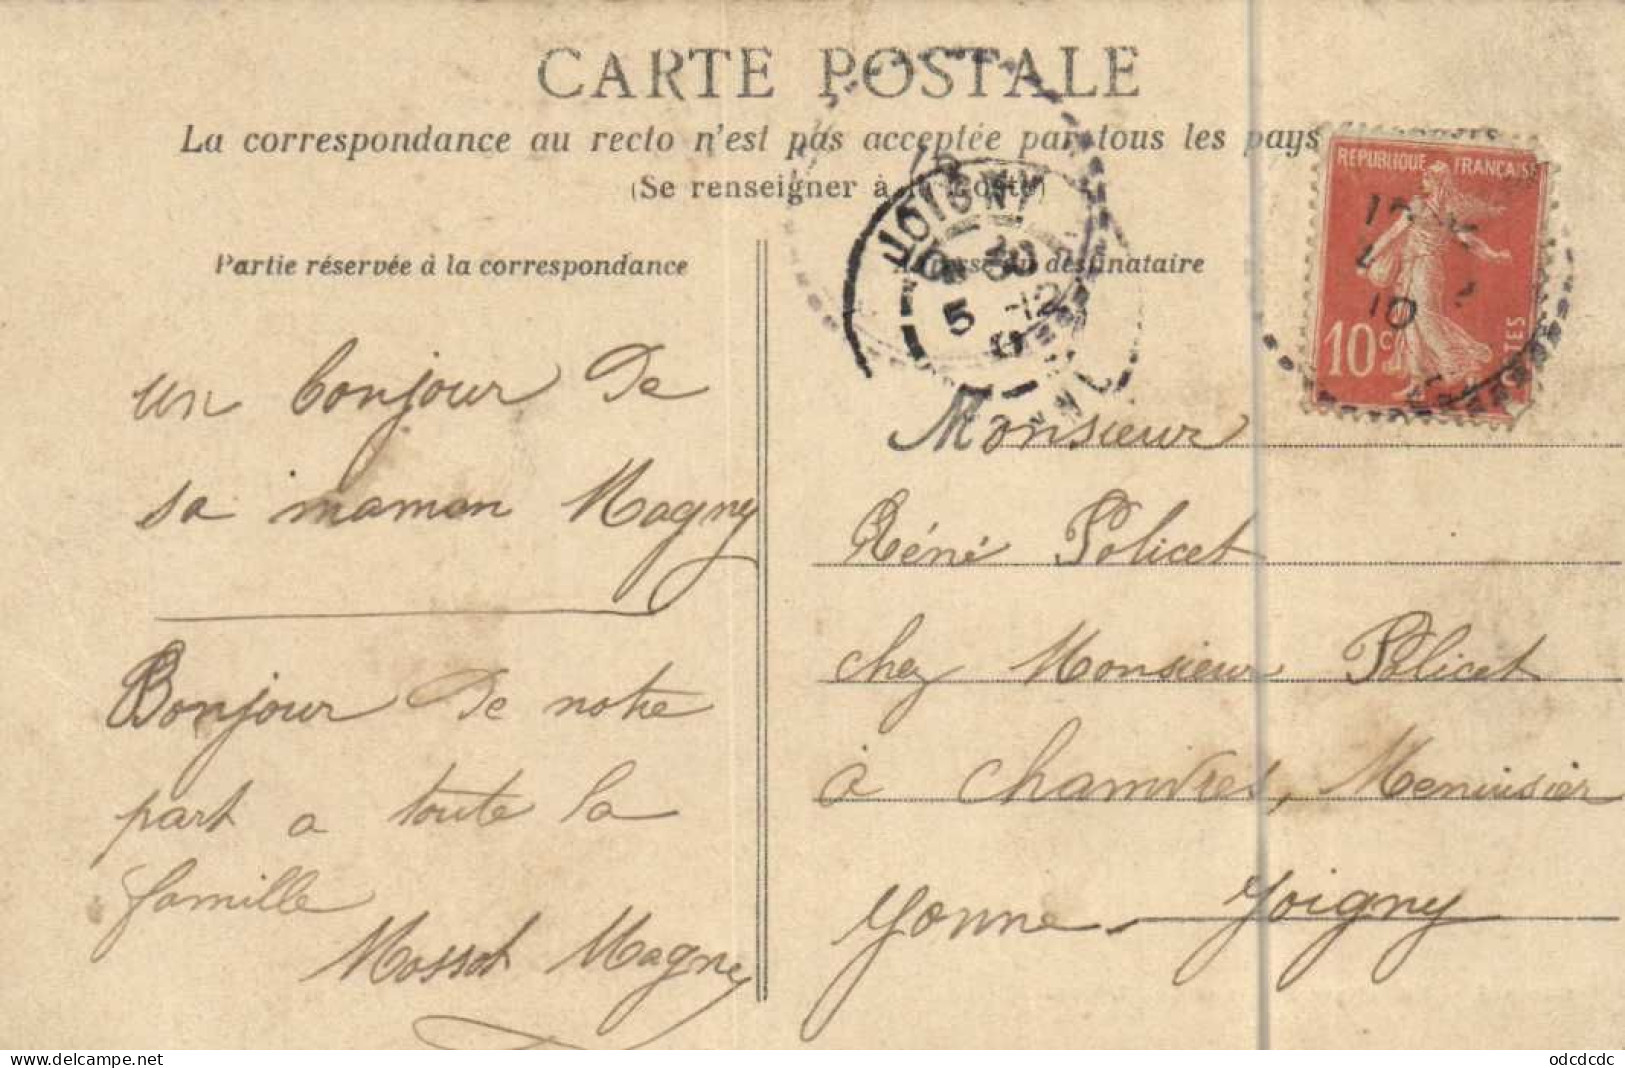 CARTE POSTALE
La correspondance au recto n'est pas acceptée par tous les pays
(Se renseigner à la Poste)
Partie réservée à la correspondance
un bonjour de
sa maman Magny
Bonjour de notre
part a toute la
famille
Mossot Magny
Adresse du destinataire
JOIGNY
5 -12
REPUBLIQUE FRANÇAISE
10 c
POSTES
Monsieur
Réné Policet
chez Monsieur Policet
à Chamvres, Menuisier
Yonne - Joigny
delcampe.net
odcdcdc